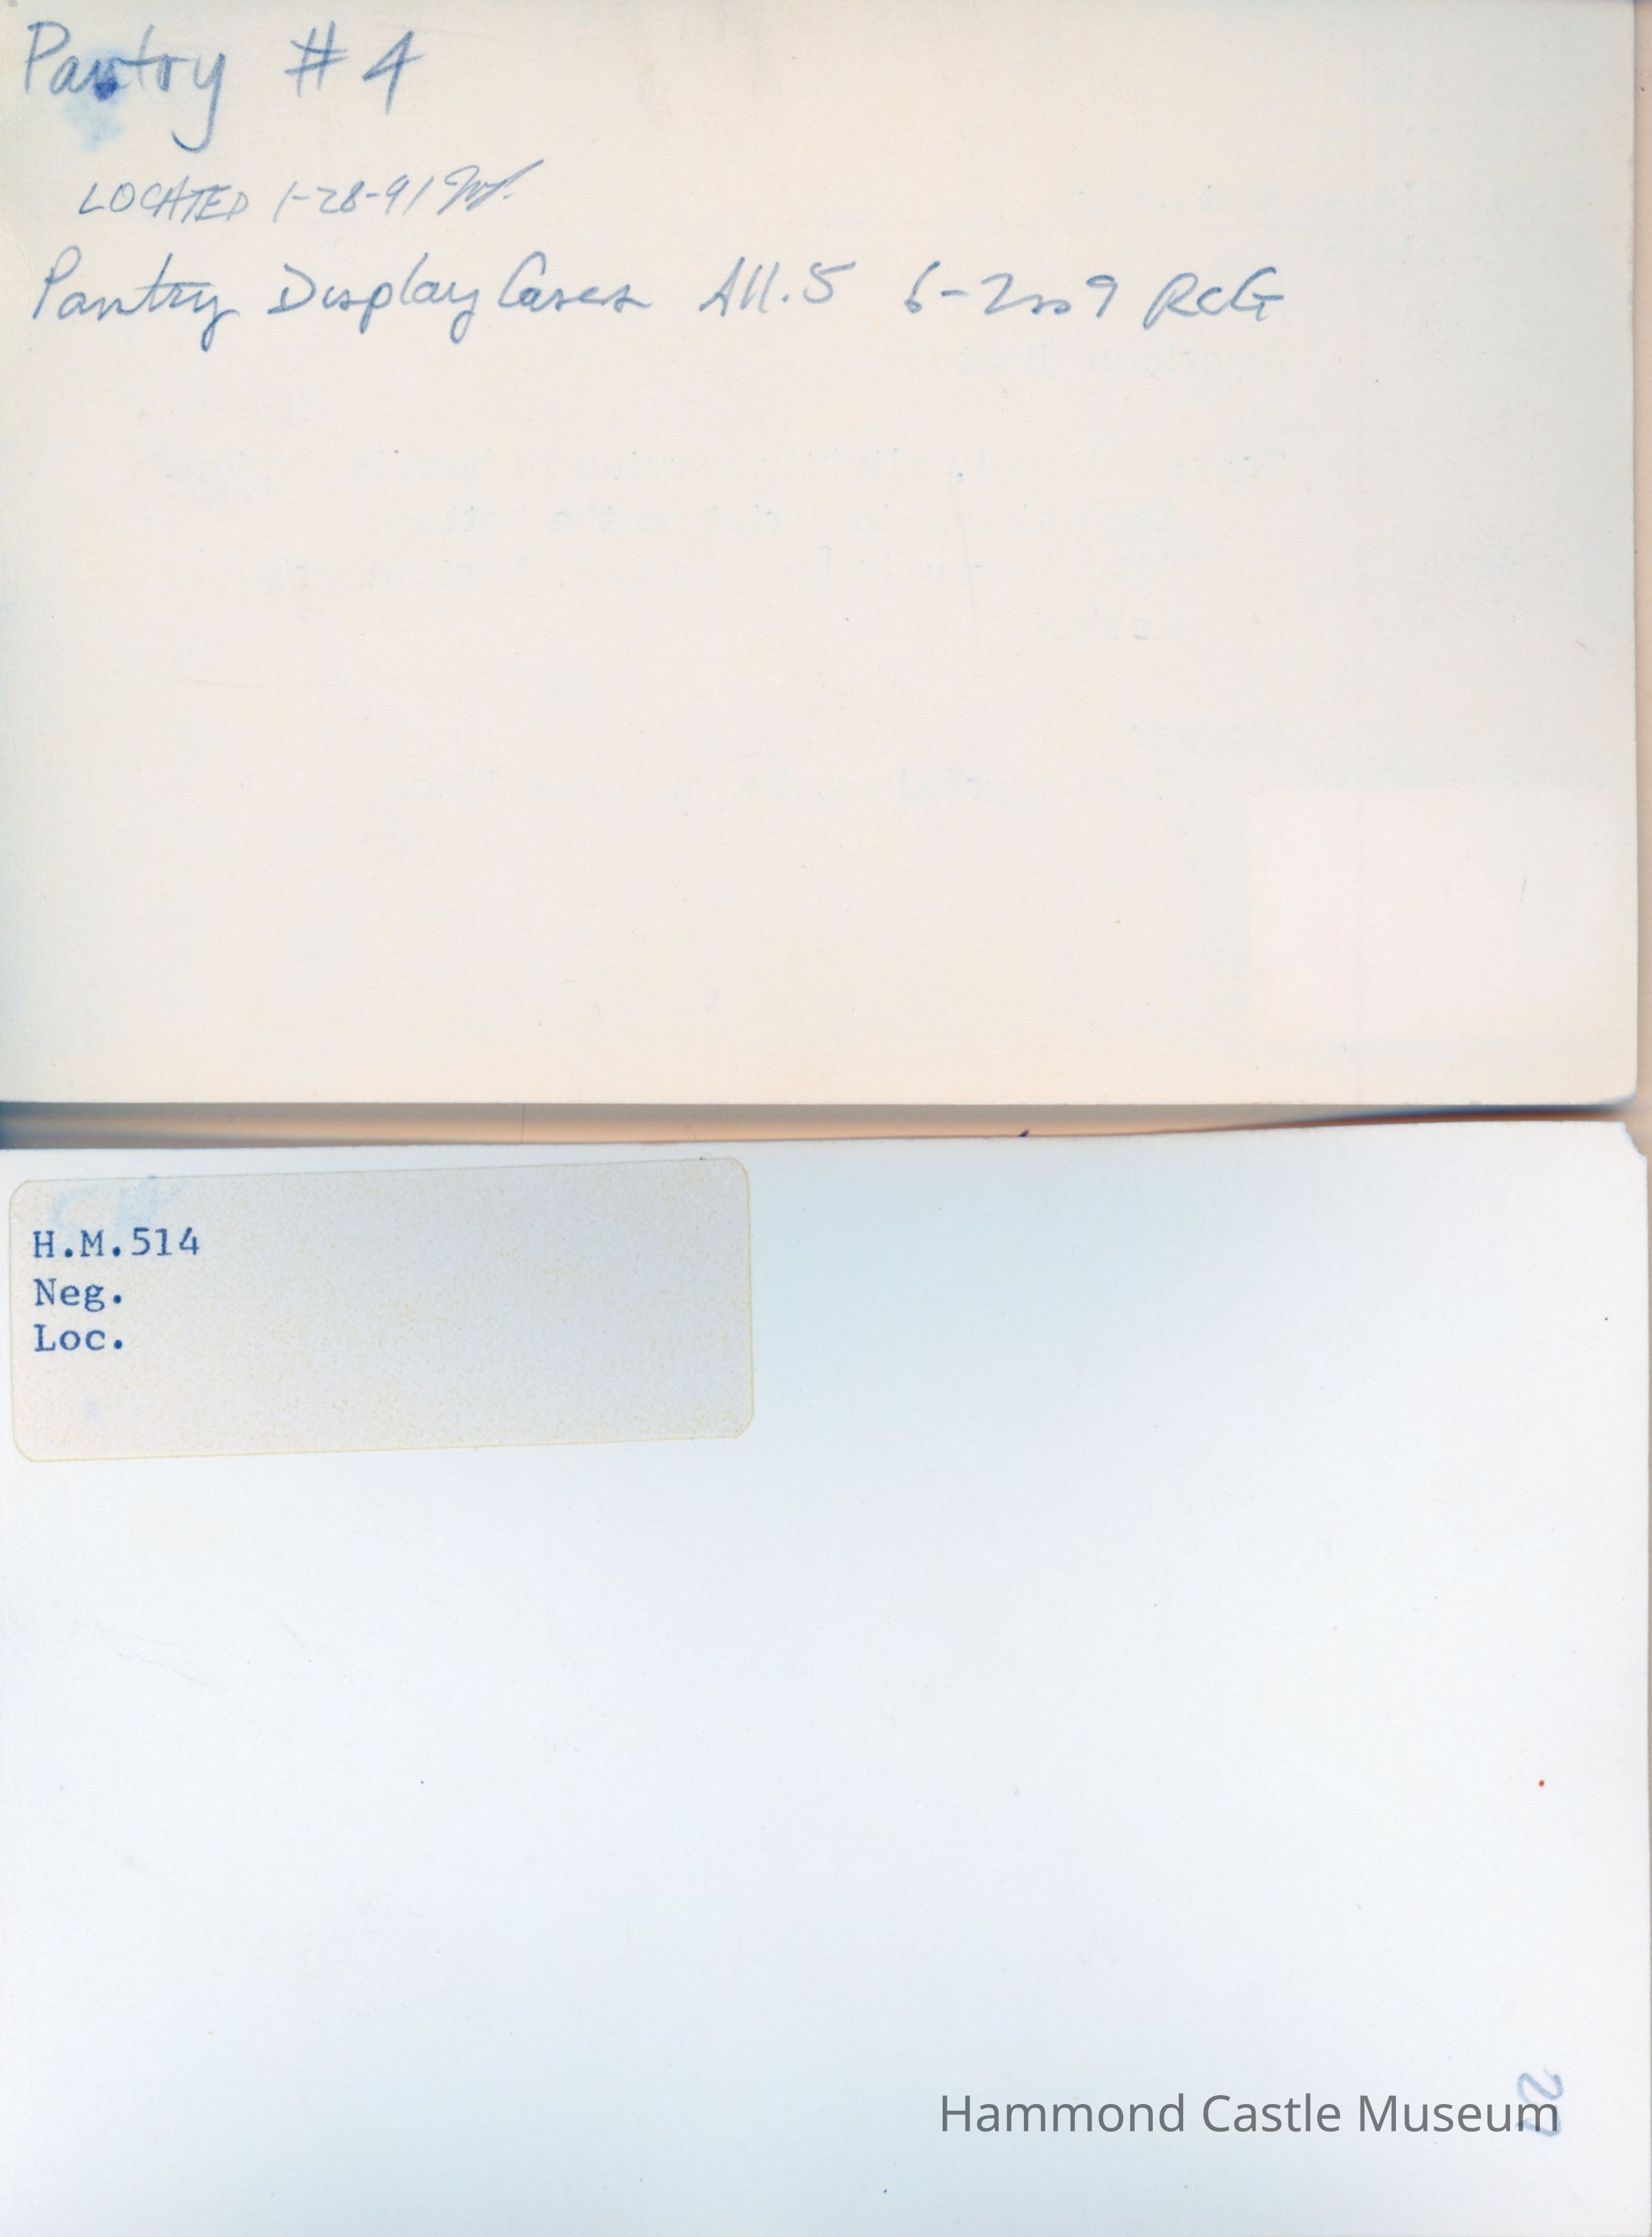 Pantry #4
LOCATED 1-28-91
Pantry Display Cases All.5 6-2009 RCG
H.M.514
Neg.
Loc.
Hammond Castle Museum